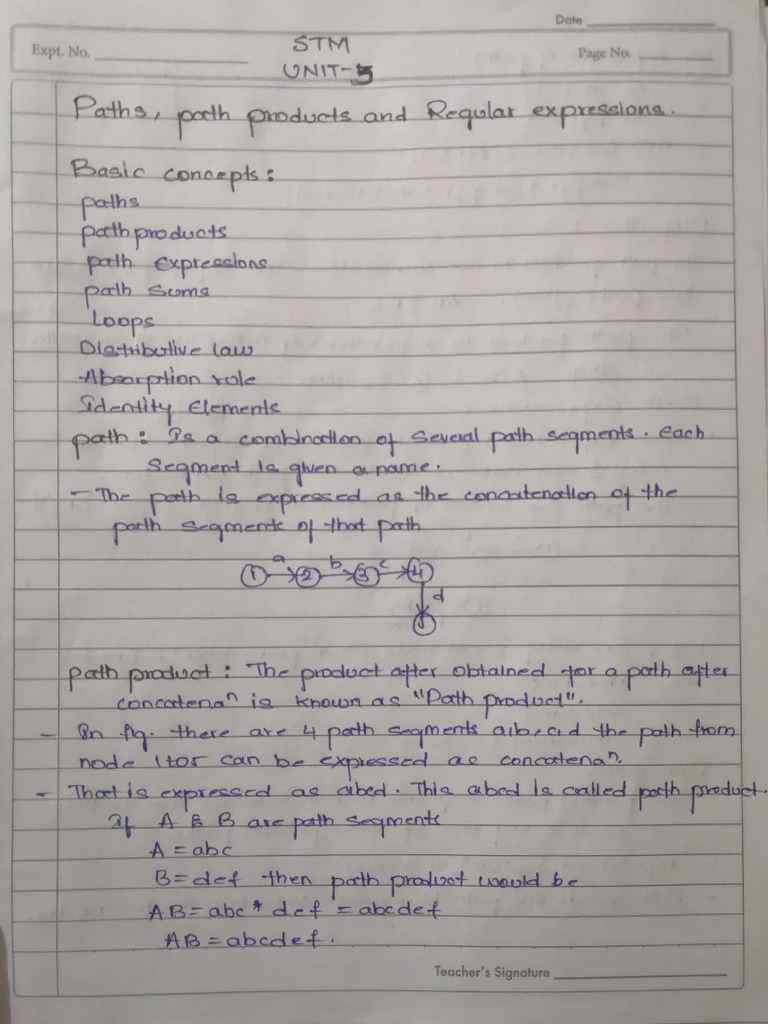 Date
Expt. No.
STM
Page No.
UNIT-5
Paths, path products and Regular expressions.
Basic concepts:
paths
path products
path expressions
path Sums
Loops
Distributive law
Absorption role
Identity Elements
path: Is a combination of several path segments. each
segment is given a name.
- The path is expressed as the concatenation of the
path segments of that path
1 a 2 b 3 c 4
d
path product: The product after obtained for a path after
concatenaⁿ is known as "Path product".
- In fig. there are 4 path segments a,b,c,d the path from
node 1 to 5 can be expressed as concatenaⁿ.
- That is expressed as abcd. This abcd is called path product.
If A & B are path segments
A = abc
B = def then path product would be
AB = abc * def = abcdef
AB = abcdef.
Teacher's Signature